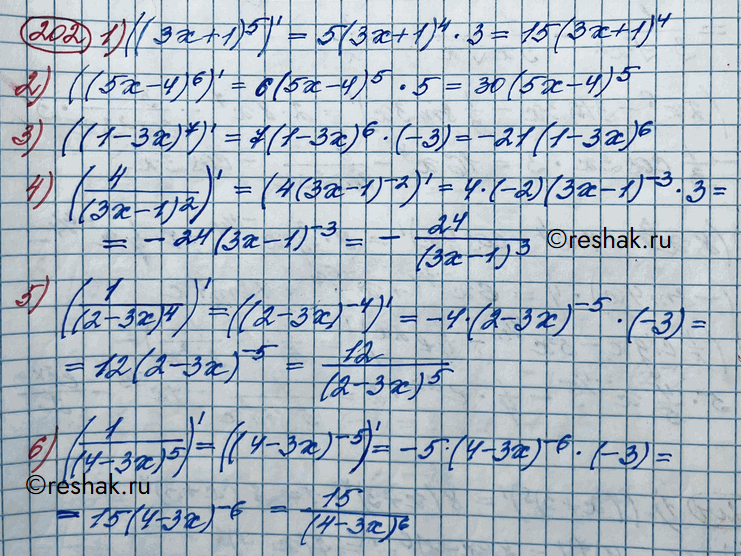 202 1) ((3x+1)^5)' = 5(3x+1)^4 · 3 = 15(3x+1)^4
2) ((5x-4)^6)' = 6(5x-4)^5 · 5 = 30(5x-4)^5
3) ((1-3x)^7)' = 7(1-3x)^6 · (-3) = -21(1-3x)^6
4) (4/(3x-1)^2)' = (4(3x-1)^-2)' = 4·(-2)(3x-1)^-3 · 3 =
= -24(3x-1)^-3 = - 24/(3x-1)^3 ©reshak.ru
5) (1/(2-3x)^4)' = ((2-3x)^-4)' = -4·(2-3x)^-5 · (-3) =
= 12(2-3x)^-5 = 12/(2-3x)^5
6) (1/(4-3x)^5)' = ((4-3x)^-5)' = -5·(4-3x)^-6 · (-3) =
©reshak.ru
= 15(4-3x)^-6 = 15/(4-3x)^6